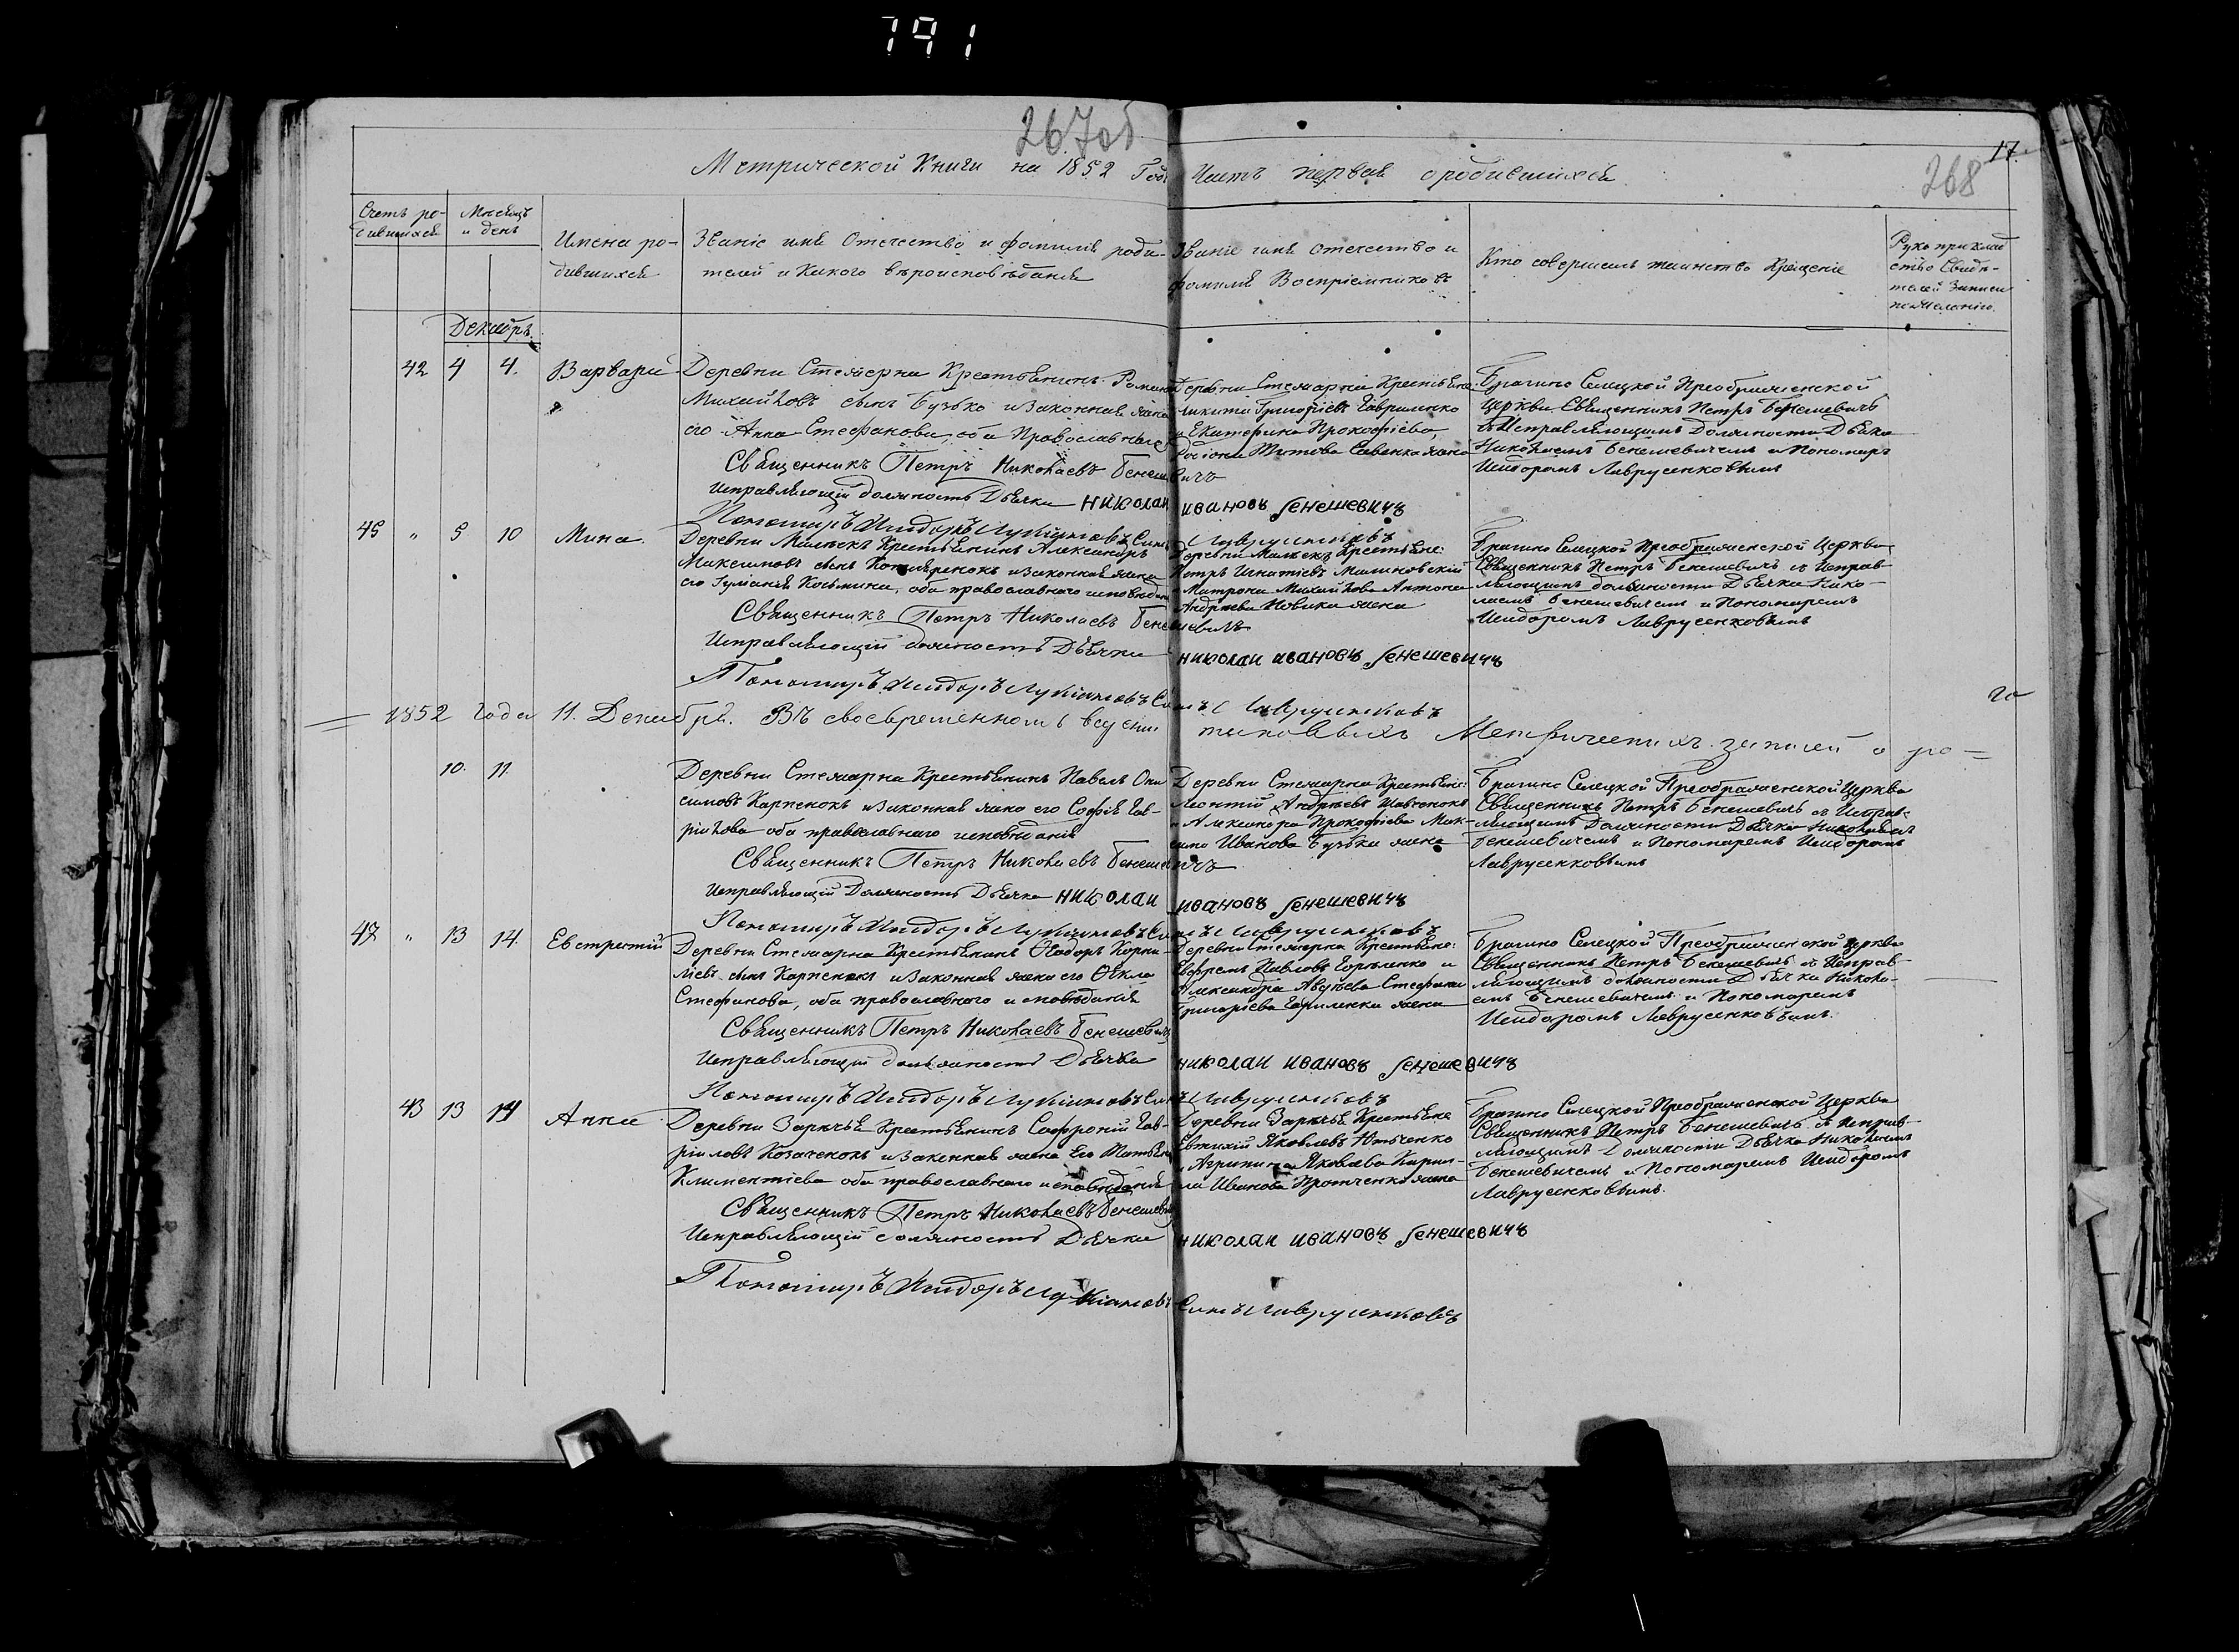 791
267об
17.
268
Метрической Книги на 1852 Годъ Часть первая о родившихся
Счетъ ро-
дившихся
Месяцъ
и день
Имена ро-
дившихся
Званіе имя Отечество и фамилія роди-
телей и Какого вѣроисповѣданія
Званіе имя отечество и
фамилія Воспріемниковъ
Кто совершалъ таинство Крещенія
Рукоприклад
ство Свидѣ-
телей Записи
по желанію.
Декабрь.
42 4 4. Варвара
Деревни Стежерна Крестьянинъ Романъ
Михайловъ сынъ Бузько и законная жена
его Анна Стефанова, оба Православнаго
Деревни Стежарна Крестьяне
Никита Григоріевъ Гавриленко
и Екатерина Прокофіева,
Родіона Титова Савенка жена
Брагино Селецкой Преображенской
Церкви Священникъ Петръ Бенешевичъ
съ Исправляющимъ Должность Дьячка
Николаемъ Бенешевичемъ и Пономаремъ
Исидоромъ Лаврусенковымъ
Священникъ Петръ Николаевъ Бенешевичъ
Исправляющій должность Дьячка Николаи Ивановъ Бенешевичъ
Пономаръ Исидоръ Лукіановъ Сынъ Лаврусенковъ
45 " 5 10 Мина.
Деревни Малѣекъ Крестьянинъ Александръ
Максимовъ сынъ Котляренокъ и законная жена
его Гуманія Косьмина, оба православнаго исповѣданія
Деревни Малѣекъ Крестьяне:
Петръ Игнатіевъ Малиновскій
и Матрона Михайлова Антона
Андреева Новика жена
Брагино Селецкой Преображенской Церкви
Священникъ Петръ Бенешевичъ съ Исправ-
ляющимъ должность Дьячка Нико-
лаемъ Бенешевичемъ и Пономаремъ
Исидоромъ Лаврусенковымъ
Священникъ Петръ Николаевъ Бенешевичъ
Исправляющій должность Дьячка Николаи Ивановъ Бенешевичъ
Пономаръ Исидоръ Лукіановъ Сынъ Лаврусенковъ
1852 года 11. Декабря. Въ своевременномъ веденіи таковыхъ Метрическихъ записей о ро-
10. 11.
Деревни Стежарна Крестьянинъ Павелъ Они
симовъ Карпенокъ и законная жена его Софія Гав-
ріилова оба православнаго исповѣданія
Деревни Стежарна Крестьяне:
Леонтій Андреевъ Шевченокъ
и Александра Прокофіева Мак-
сима Иванова Бузька жена
Брагино Селецкой Преображенской Церкви
Священникъ Петръ Бенешевичъ съ Исправ-
ляющимъ Должность Дьячка Николаемъ
Бенешевичемъ и Пономаремъ Исидоромъ
Лаврусенковымъ
Священникъ Петръ Николаевъ Бенешевичъ
Исправляющій Должность Дьячка Николаи Ивановъ Бенешевичъ
Пономаръ Исидоръ Лукіановъ Сынъ Лаврусенковъ
47 " 13 14. Евстратій
Деревни Стежарна Крестьянинъ Ѳеодоръ Корни-
ліевъ сынъ Карпенокъ и законная жена его Ѳекла
Стефанова, оба православного исповѣданія
Деревни Стежарна Крестьяне:
Ефремъ Павловъ Горѣленко и
Александра Авдѣева Стефана
Григоріева Гавриленка жена
Брагино Селецкой Преображенской Церкви
Священникъ Петръ Бенешевичъ съ Исправ-
ляющимъ должность Дьячка Никола-
емъ Бенешевичемъ и Пономаремъ
Исидоромъ Лаврусенковымъ.
Священникъ Петръ Николаевъ Бенешевичъ
Исправляющій должность Дьячка Николаи Ивановъ Бенешевичъ
Пономаръ Исидоръ Лукіановъ Сынъ Лаврусенковъ
43 13 14 Анна
Деревни Зарѣчья Крестьянинъ Софроній Гав-
ріиловъ Козаченокъ и законная жена его Татьяна
Климентіева оба православнаго исповѣданія
Деревни Зарѣчья Крестьяне
Евтихій Яковлевъ
и Агрипина Яковлева Кирил-
ла Иванова Протченка жена
Брагино Селецкой Преображенской Церкви
Священникъ Петръ Бенешевичъ съ Исправ-
ляющимъ Должность Дьячка Николаемъ
Бенешевичемъ и Пономаремъ Исидоромъ
Лаврусенковымъ.
Священникъ Петръ Николаевъ Бенешевичъ
Исправляющій должность Дьячка Николаи Ивановъ Бенешевичъ
Пономаръ Исидоръ Лукіановъ Сынъ Лаврусенковъ